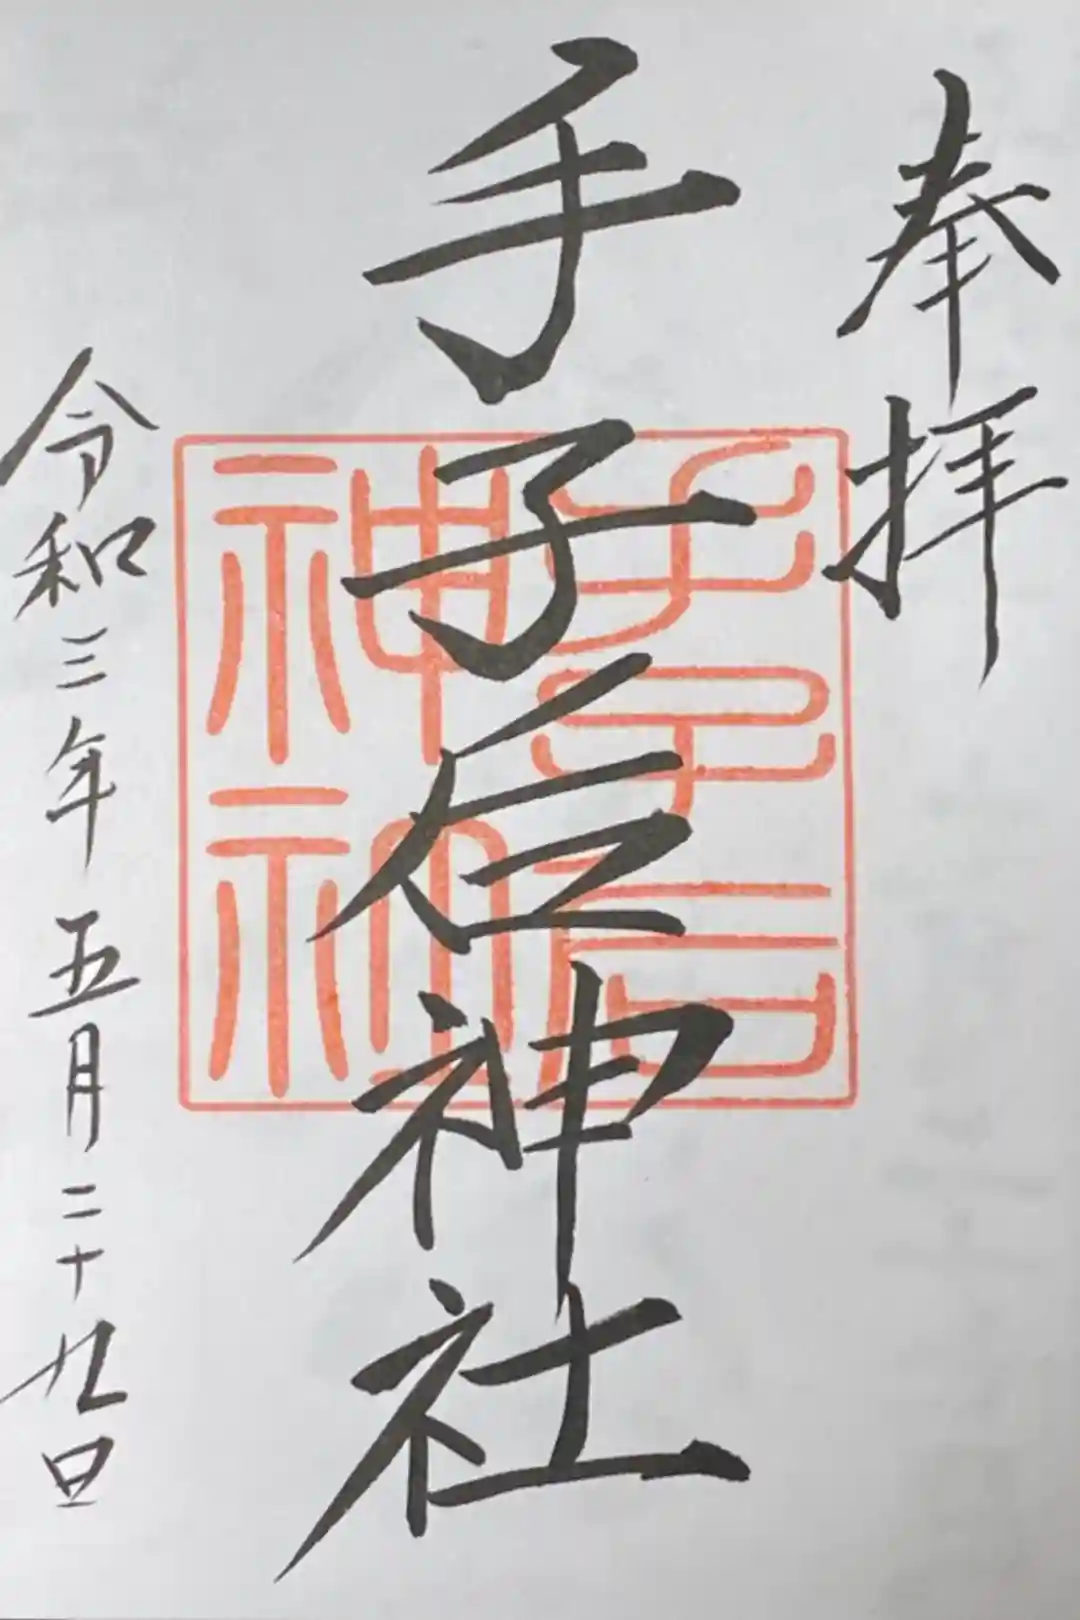 奉拝
手子后神社
手子后
神社
令和三年五月二十九日